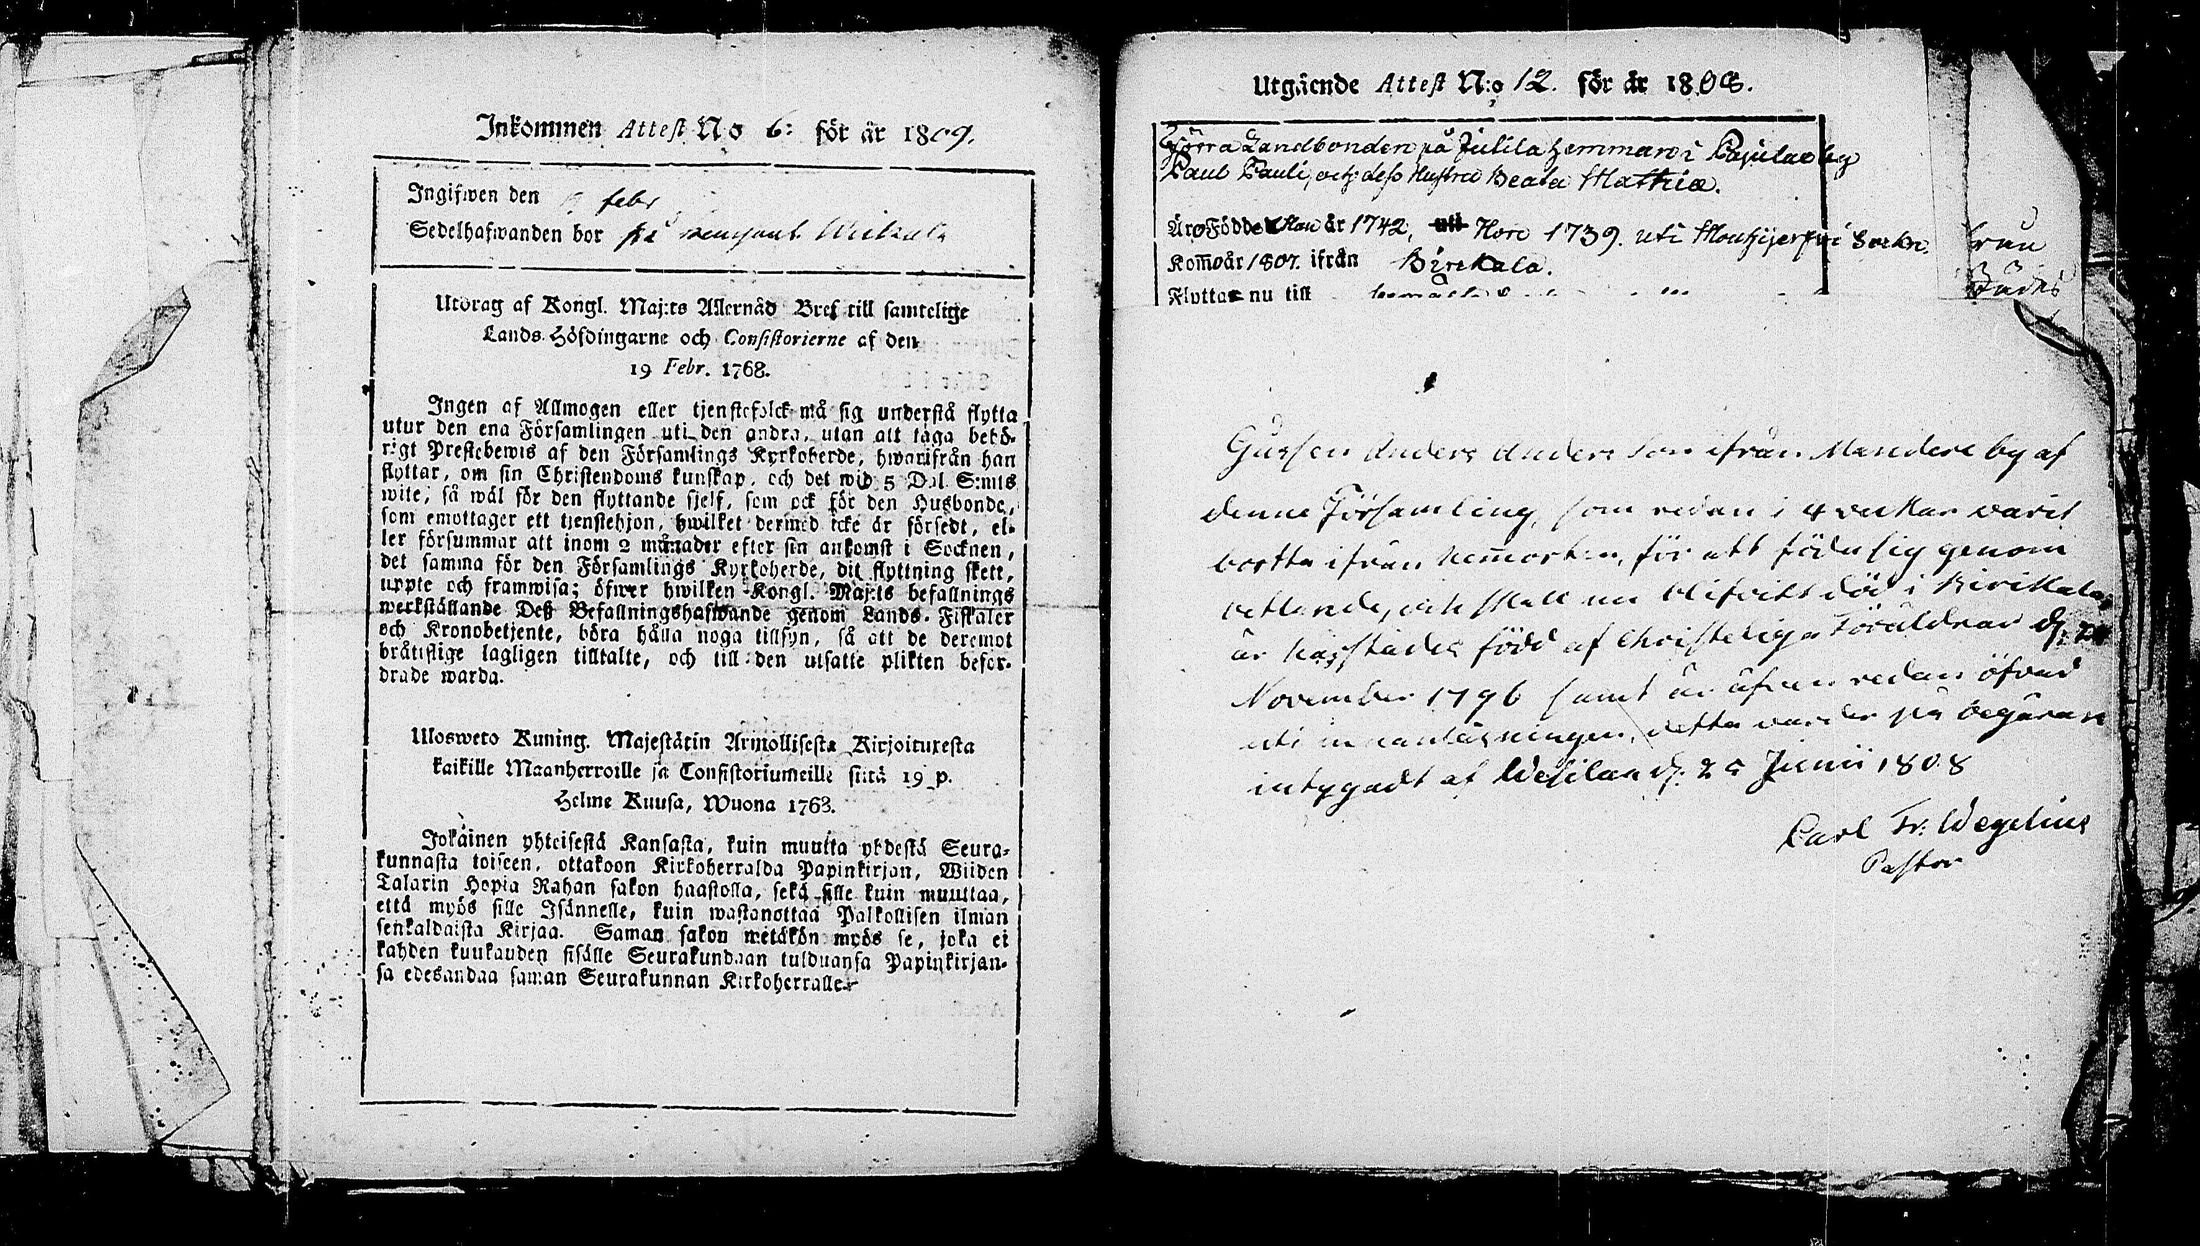 Inkommen Attest No 6: för år 1809.
Ingifwen den febr
Sedelhafwanden bor på
Utdrag af Kongl. Maj:ts Allernåd Bref till samtelige
Lands-Höfdingarne och Consistorierne af den
19 Febr. 1768.
Ingen af Allmogen eller tjenstefolck må sig understå flytta
utur den ena Församlingen uti den andra, utan att taga behö-
rigt Prestebewis af den Församlings Kyrkoherde, hwarifrån han
flyttar, om sin Christendoms kunskap, och det wid 5 Dal. S:mts
wite, så wäl för den flyttande sjelf, som ock för den Husbonde,
som emottager ett tjenstehjon, hwilket dermed icke är försedt, el-
ler försummar att inom 2 månader efter sin ankomst i Socknen,
det samma för den Församlings Kyrkoherde, dit flyttning skett,
uppte och framwisa; öfwer hwilken Kongl. Maj:ts befallnings
werkställande Deß Befallningshafwande genom Lands-Fiskaler
och Kronobetjente, böra hålla noga tillsyn, så att de deremot
bråtislige lagligen tilltalte, och till den utsatte plikten befor-
drade warda.
Ulosweto Kuning. Majestätin Armollisesta Kirjoituxesta
kaikille Maanherroille ja Consistoriumeille siitä 19 p.
Helme Kuusa, Wuona 1768.
Jokainen yhteisestä Kansasta, kuin muutta yhdestä Seura-
kunnasta toiseen, ottakoon Kirkoherralda Papinkirjan, Wiiden
Talarin Hopia Rahan sakon haastolla, sekä sille kuin muuttaa,
että myös sille Isännelle, kuin wastanottaa Palkollisen ilman
senkaldaista Kirjaa. Saman sakon wetäkön myös se, joka ei
kahden kuukauden sisälle Seurakundaan tulduansa Papinkirjan-
sa edesandaa saman Seurakunnan Kirkoherralle.
Utgående Attest N:o 12. för år 1808.
Förra Landbonden på Juttila hemman i by
Paul Pauli, och deß Hustru Beata Mathiæ.
Äro Födde Han år 1742, Hon 1739. uti
Kom̄o år 1807. ifrån Birckala.
Flyttar nu till
Gossen Anders Andersson ifrån by af
denne Församling, som redan i 4 veckor varit
bortta ifrån hemorten, för att föda sig genom
och skall nu blifvitt död i Birckala
är härstädes född af Christeliga Föräldrar d:
November 1796 samt är äfven redan öfvad
uti innanläsningen, detta varder på begäran
intygadt af Wesilax d: 25 Junii 1808
Carl Fr: Wegelius
Pastor